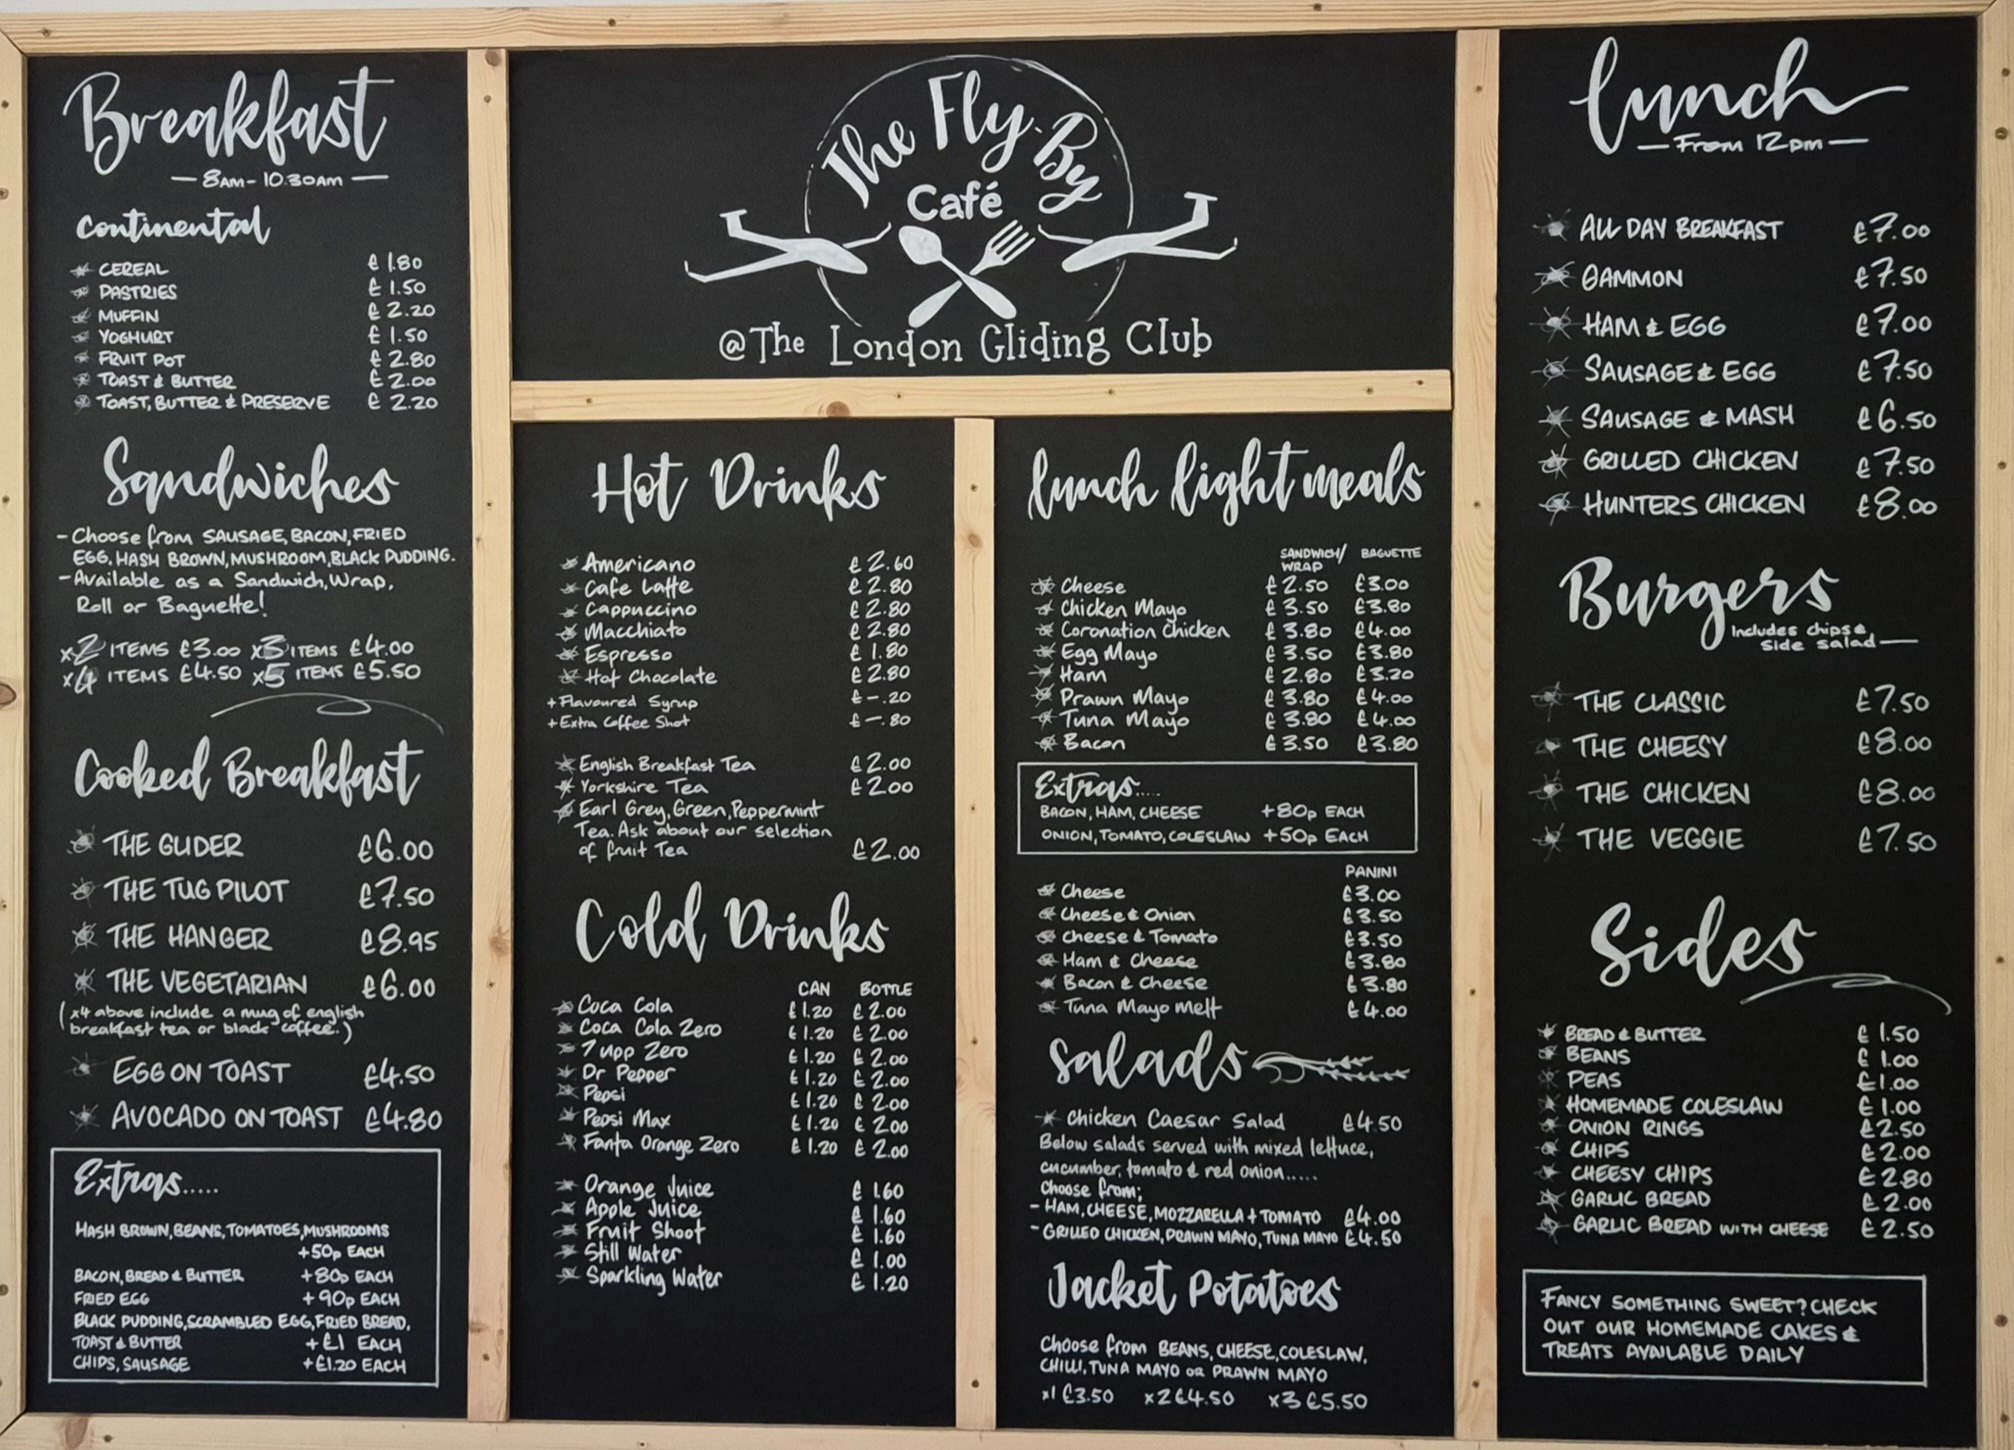 Breakfast
8AM - 10.30AM
Continental
CEREAL £1.80
PASTRIES £1.50
MUFFIN £2.20
YOGHURT £1.50
FRUIT POT £2.80
TOAST & BUTTER £2.00
TOAST, BUTTER & PRESERVE £2.20
Sandwiches
- Choose from SAUSAGE, BACON, FRIED
EGG, HASH BROWN, MUSHROOM, BLACK PUDDING.
- Available as a Sandwich, Wrap,
Roll or Baguette!
x2 ITEMS £3.00 x3 ITEMS £4.00
x4 ITEMS £4.50 x5 ITEMS £5.50
Cooked Breakfast
THE GLIDER £6.00
THE TUG PILOT £7.50
THE HANGER £8.95
THE VEGETARIAN £6.00
(x4 above include a mug of english
breakfast tea or black coffee.)
EGG ON TOAST £4.50
AVOCADO ON TOAST £4.80
Extras.....
HASH BROWN, BEANS, TOMATOES, MUSHROOMS
+50p EACH
BACON, BREAD & BUTTER +80p EACH
FRIED EGG +90p EACH
BLACK PUDDING, SCRAMBLED EGG, FRIED BREAD,
TOAST & BUTTER +£1 EACH
CHIPS, SAUSAGE +£1.20 EACH
The Fly-By
Café
@The London Gliding Club
Hot Drinks
Americano £2.60
Cafe Latte £2.80
Cappuccino £2.80
Macchiato £2.80
Espresso £1.80
Hot Chocolate £2.80
+ Flavoured Syrup £-.20
+ Extra Coffee Shot £-.80
English Breakfast Tea £2.00
Yorkshire Tea £2.00
Earl Grey, Green, Peppermint
Tea. Ask about our selection
of fruit Tea £2.00
Cold Drinks
CAN BOTTLE
Coca Cola £1.20 £2.00
Coca Cola Zero £1.20 £2.00
7upp Zero £1.20 £2.00
Dr Pepper £1.20 £2.00
Pepsi £1.20 £2.00
Pepsi Max £1.20 £2.00
Fanta Orange Zero £1.20 £2.00
Orange Juice £1.60
Apple Juice £1.60
Fruit Shoot £1.60
Still Water £1.00
Sparkling Water £1.20
lunch light meals
SANDWICH/ BAGUETTE
WRAP
Cheese £2.50 £3.00
Chicken Mayo £3.50 £3.80
Coronation Chicken £3.80 £4.00
Egg Mayo £3.50 £3.80
Ham £2.80 £3.20
Prawn Mayo £3.80 £4.00
Tuna Mayo £3.80 £4.00
Bacon £3.50 £3.80
Extras.....
BACON, HAM, CHEESE +80p EACH
ONION, TOMATO, COLESLAW +50p EACH
PANINI
Cheese £3.00
Cheese & Onion £3.50
Cheese & Tomato £3.50
Ham & Cheese £3.80
Bacon & Cheese £3.80
Tuna Mayo Melt £4.00
Salads
Chicken Caesar Salad £4.50
Below salads served with mixed lettuce,
cucumber, tomato & red onion.....
Choose from;
- HAM, CHEESE, MOZZARELLA + TOMATO £4.00
- GRILLED CHICKEN, PRAWN MAYO, TUNA MAYO £4.50
Jacket Potatoes
Choose from BEANS, CHEESE, COLESLAW,
CHILLI, TUNA MAYO OR PRAWN MAYO
x1 £3.50 x2 £4.50 x3 £5.50
lunch
From 12pm
ALL DAY BREAKFAST £7.00
GAMMON £7.50
HAM & EGG £7.00
SAUSAGE & EGG £7.50
SAUSAGE & MASH £6.50
GRILLED CHICKEN £7.50
HUNTERS CHICKEN £8.00
Burgers
Includes chips &
side salad
THE CLASSIC £7.50
THE CHEESY £8.00
THE CHICKEN £8.00
THE VEGGIE £7.50
Sides
BREAD & BUTTER £1.50
BEANS £1.00
PEAS £1.00
HOMEMADE COLESLAW £1.00
ONION RINGS £2.50
CHIPS £2.00
CHEESY CHIPS £2.80
GARLIC BREAD £2.00
GARLIC BREAD WITH CHEESE £2.50
FANCY SOMETHING SWEET? CHECK
OUT OUR HOMEMADE CAKES &
TREATS AVAILABLE DAILY